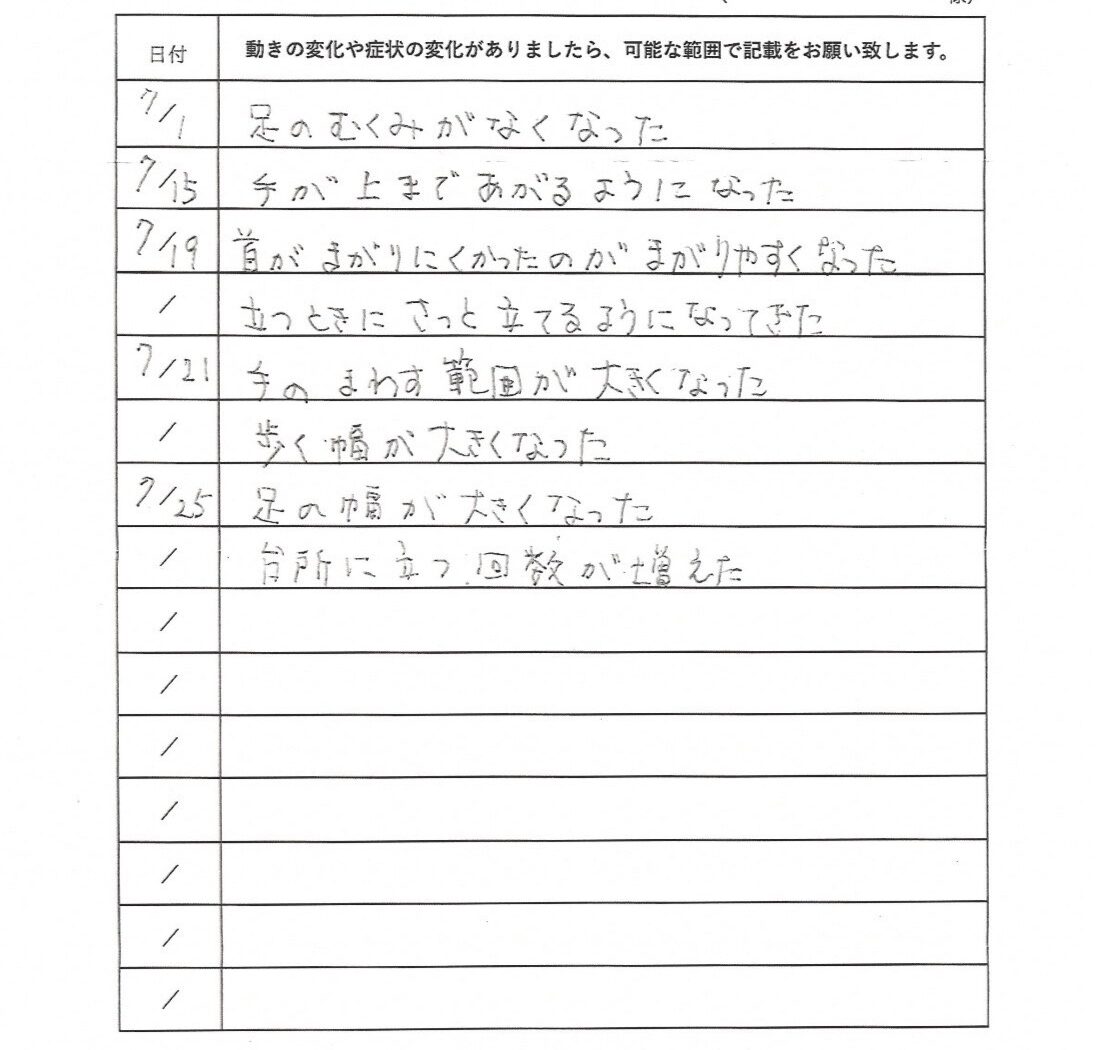 様）
日付 動きの変化や症状の変化がありましたら、可能な範囲で記載をお願い致します。
7/1 足のむくみがなくなった
7/15 手が上まであがるようになった
7/19 首がまがりにくかったのがまがりやすくなった
/ 立つときにさっと立てるようになってきた
7/21 手のまわす範囲が大きくなった
/ 歩く幅が大きくなった
7/25 足の幅が大きくなった
/ 台所に立つ回数が増えた
/
/
/
/
/
/
/